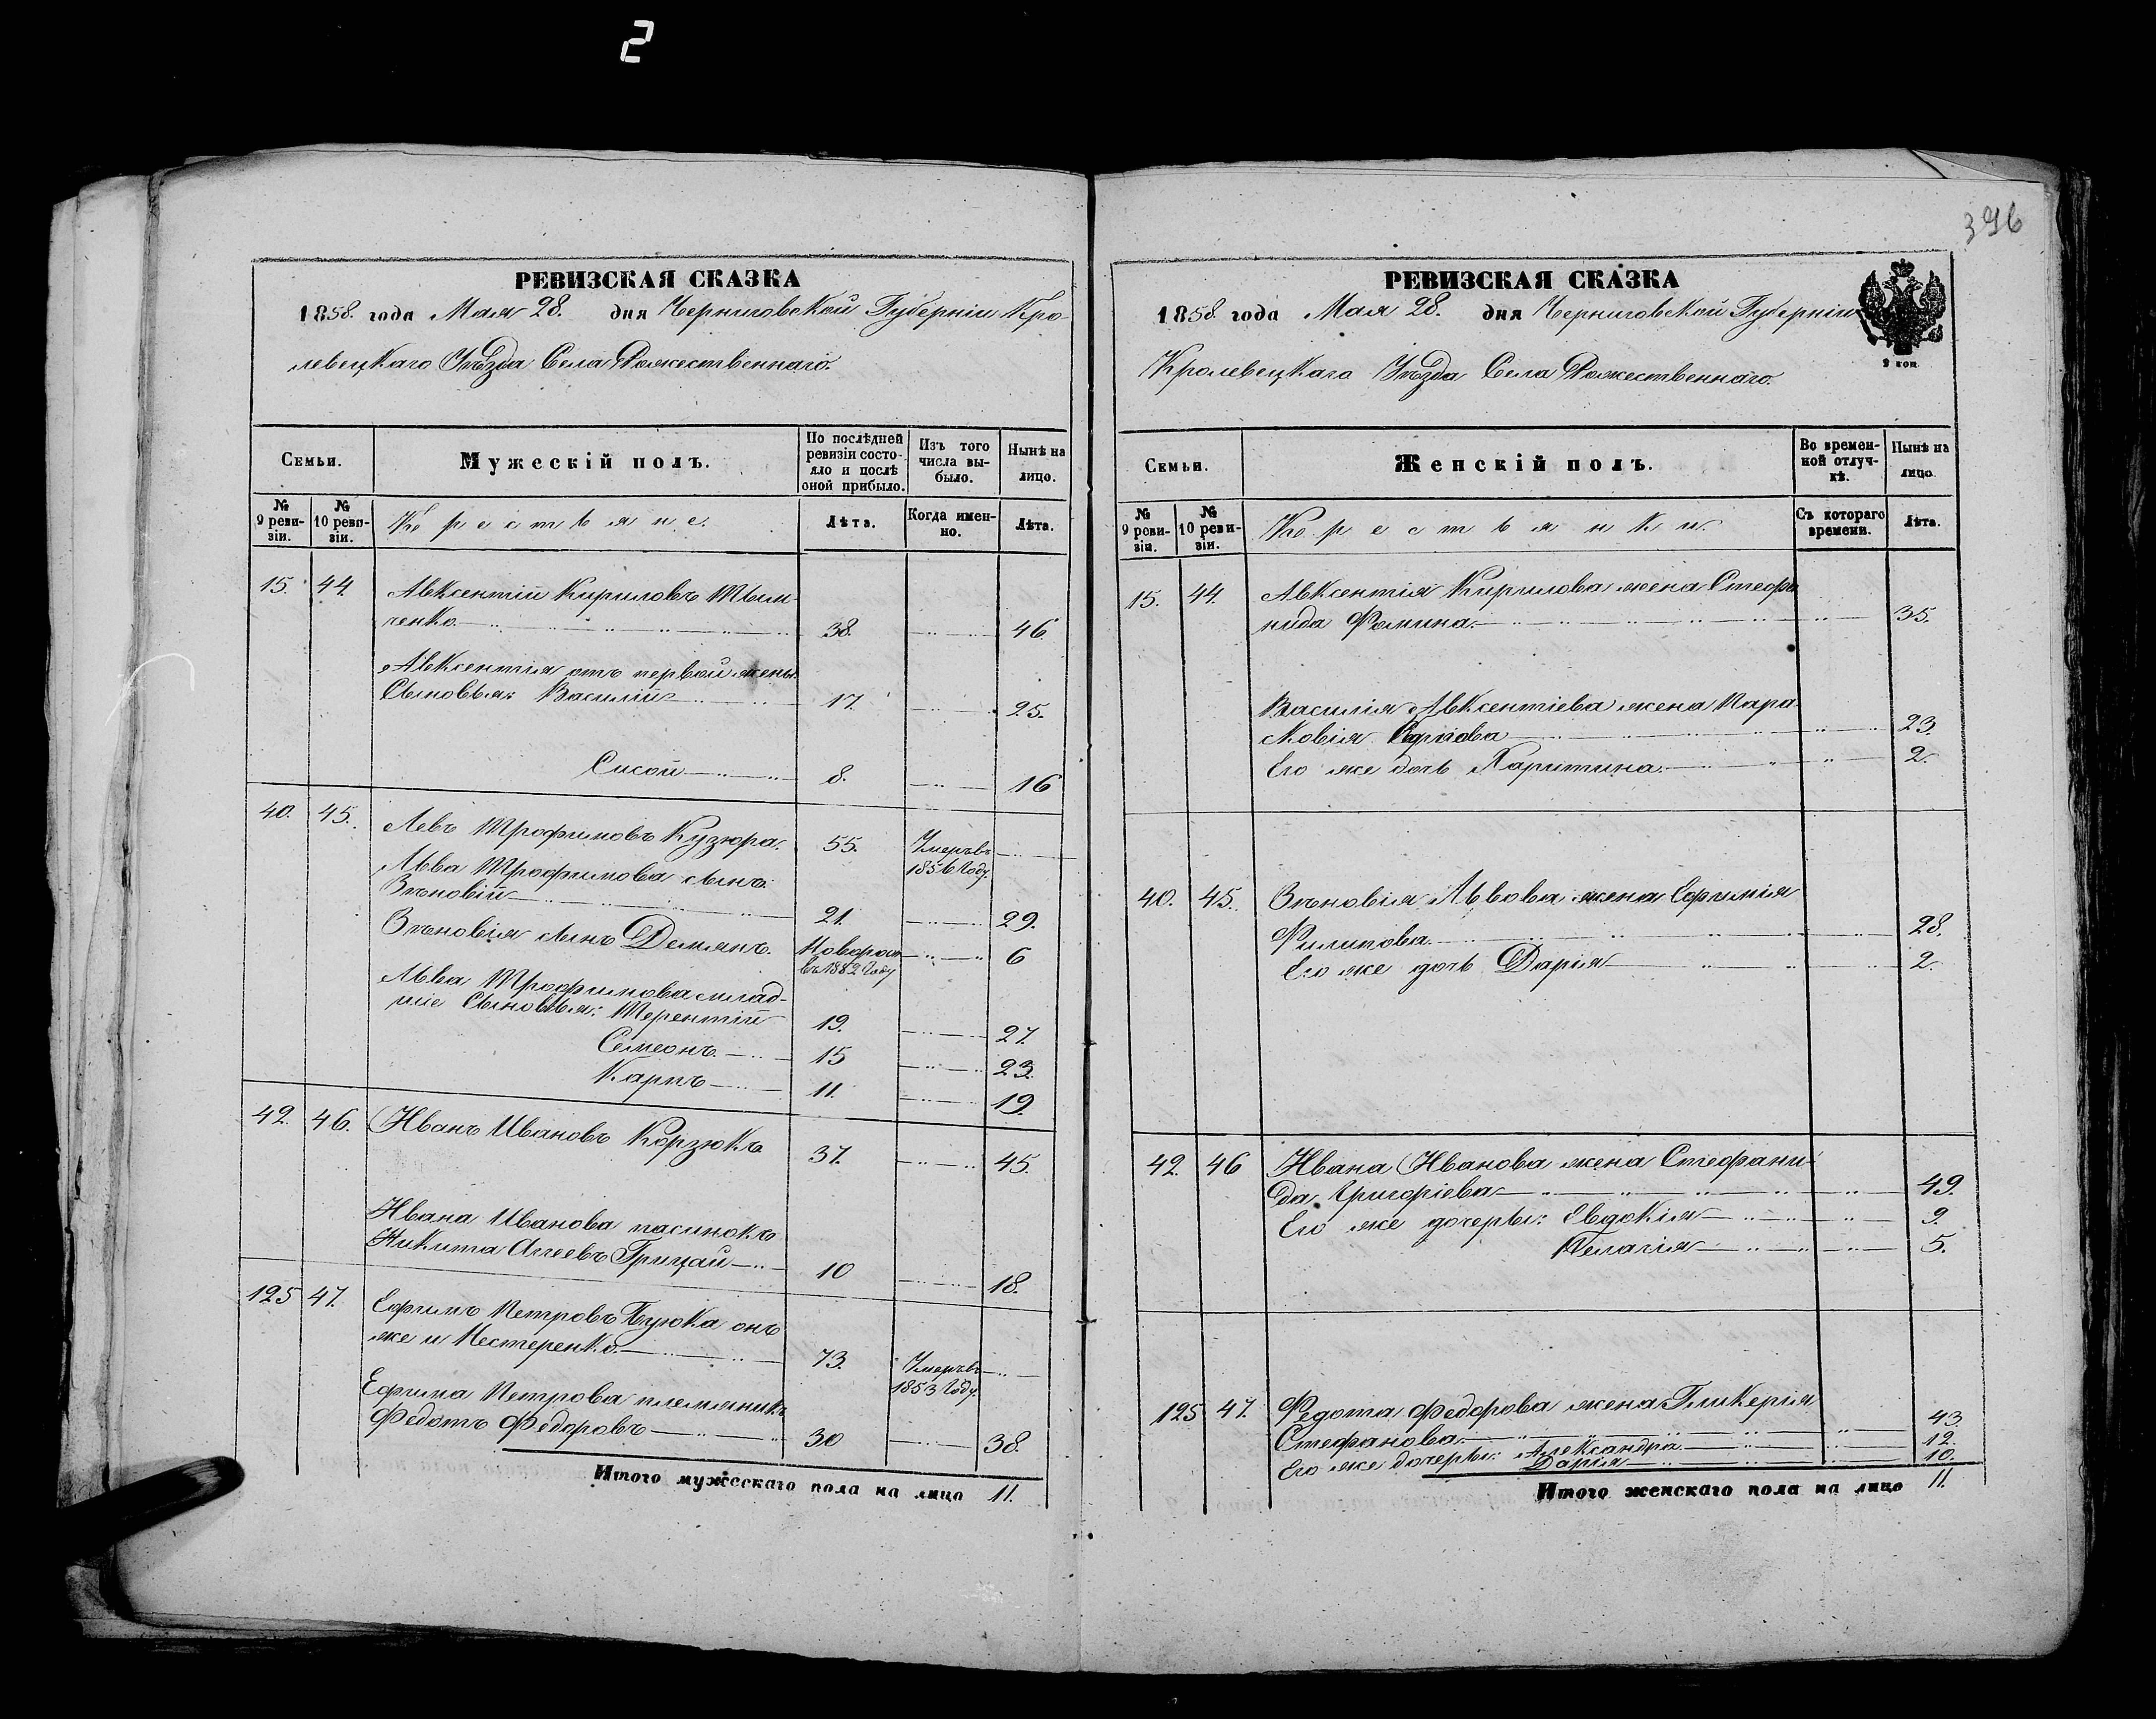 2
396
РЕВИЗСКАЯ СКАЗКА
1858. года Мая 28. дня Черниговской Губернiи Кро-
левецкаго Уѣзда Села Рожественнаго.
Семьи.
Мужескiй полъ.
По послѣдней ревизiи состо-яло и послѣ оной прибыло.
Изъ того числа вы-было.
Нынѣ на лицо.
№ 9 реви-зiи.
№ 10 реви-зiи.
Крестьяне.
Лѣта.
Когда имен-но.
Лѣта.
15. 44. Авксентiй Кириловъ
ченко. 38. 46.
Авксентiя отъ первой жены
Сыновья: Василiй 17. 25.
Сисой 8. 16
40. 45. Левъ Трофимовъ Кузюра. 55. Умеръ въ
1856 Году.
Льва Трофимова сынъ:
Зѣновiй 21. 29.
Зѣновiя сынъ Демянъ. Новорож
6
Льва Трофимова млад-
шiе Сыновья: Терентiй 19. 27.
Семеонъ. 15 23.
Карпъ 11. 19.
42. 46. Иванъ Ивановъ Корзюкъ 37. 45.
Ивана Иванова пасинокъ
Никита Грицай 10 18.
125 47. Ефимъ Петровъ онъ
же и Нестеренко. 73. Умеръ въ
1853 Году.
Ефима Петрова племяникъ
Федотъ Федоровъ 30 38.
Итого мужескаго пола на лицо 11.
РЕВИЗСКАЯ СКАЗКА
1858. года Мая 28. дня Черниговской Губернiи
Кролевецкаго Уѣзда Села Рожественнаго.
2 коп
Семьи.
Женскiй полъ.
Во времен-ной отлуч-кѣ.
Нынѣ на лицо.
№ 9 реви-зiи.
№ 10 реви-зiи.
Крестьянки.
Съ котораго времени.
Лѣта.
15. 44. Авксентiя Кирилова жена Стефа
нида Фомина. 35.
Василiя Авксентiева жена Пара-
сковiя 23.
Его же дочь Харитина. 2.
40. 45. Зѣновiя Львова жена Ефимiя
Филипова. 28.
Его же дочь Дарiя 2.
42. 46 Ивана Иванова жена Стефани-
да Григорiева 49.
Его же дочери: Евдокiя 9.
Пелагiя 5.
125 47. Федота Федорова жена Гликерiя
Стефанова. 43.
Его же дочери: Александра 12.
Дарiя 10.
Итого женскаго пола на лицо 11.